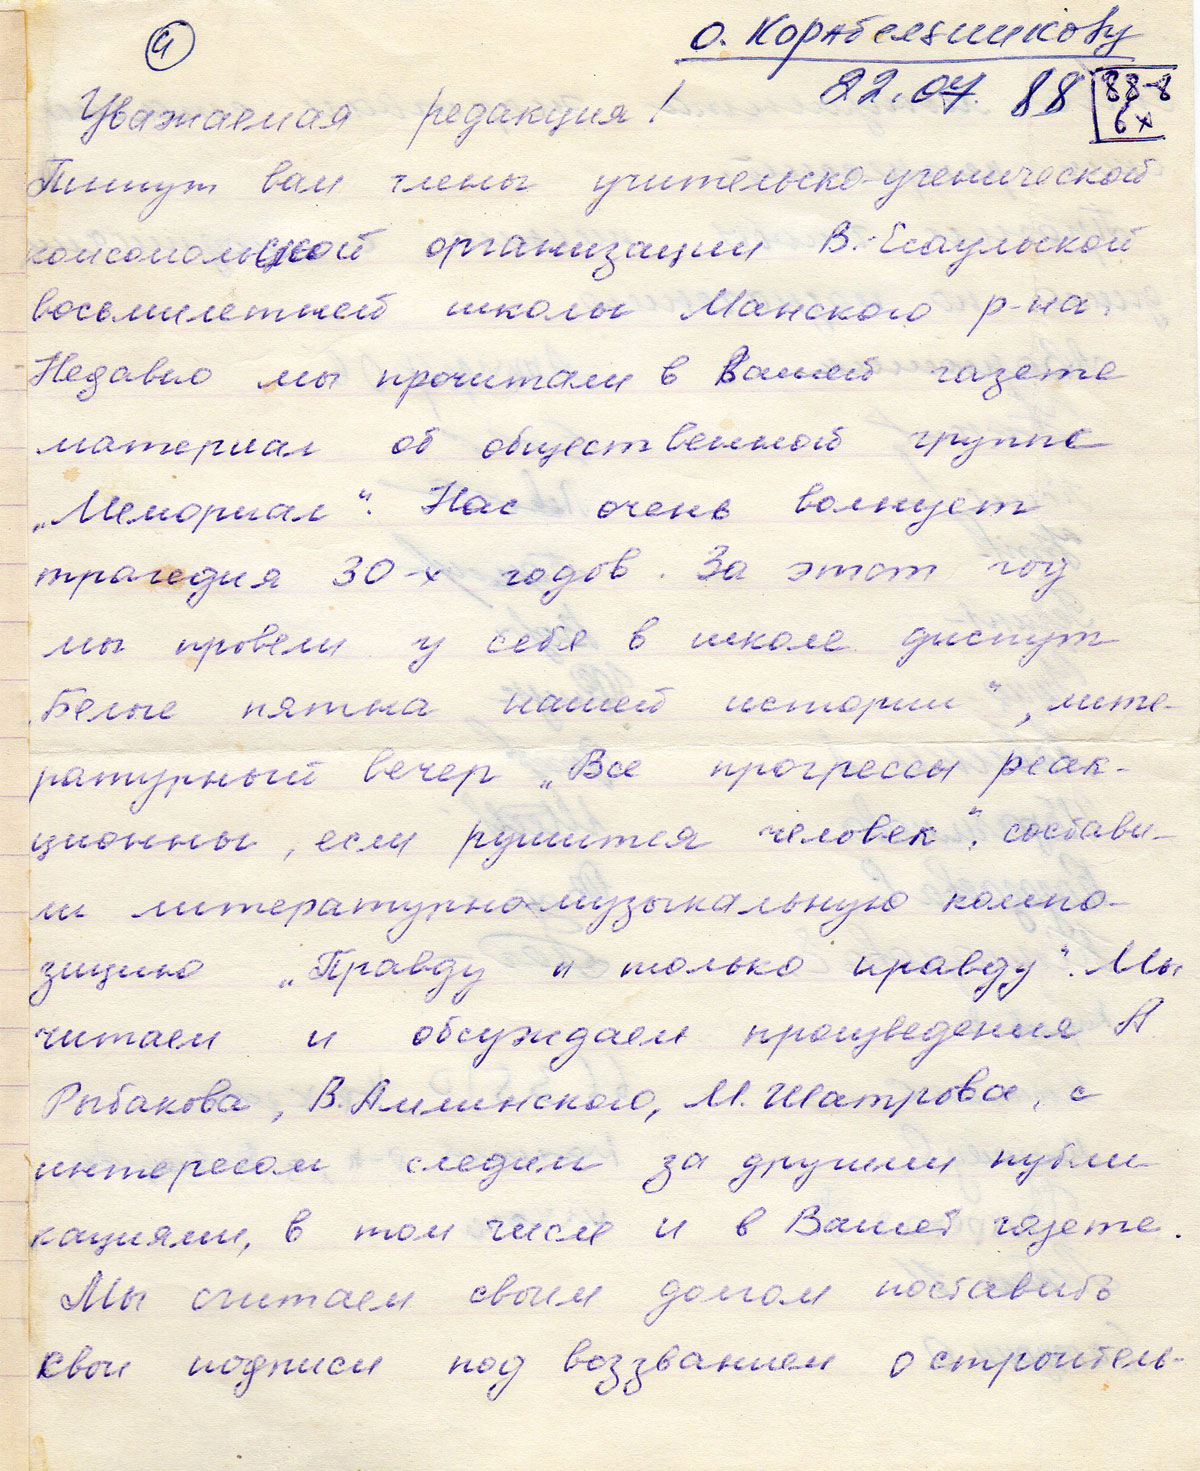 4
о. Корабельникову
22.07. 88
88-8
6 х
Уважаемая редакция!
Пишут вам члены учительско-ученической
комсомольской организации В.-Есаульской
восьмилетней школы Манского р-на.
Недавно мы прочитали в Вашей газете
материал об общественной группе
„Мемориал“. Нас очень волнует
трагедия 30-х годов. За этот год
мы провели у себя в школе диспут
„Белые пятна нашей истории“, лите-
ратурный вечер „Все прогрессы реак-
ционны, если рушится человек“. состави-
ли литературно-музыкальную компо-
зицию „Правду и только правду“. Мы
читаем и обсуждаем произведения А
Рыбакова, В. Амлинского, М. Шатрова, с
интересом следим за другими публи-
кациями, в том числе и в Вашей газете.
Мы считаем своим долгом поставить
свои подписи под воззванием о строитель-